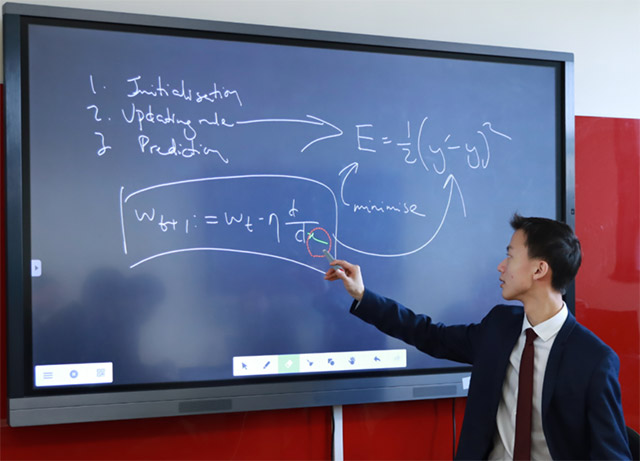 1. Initialisation
2. Updating rule
3 Prediction
E = 1/2 (y' - y)²
minimise
w_{t+1} := w_t - η d/d